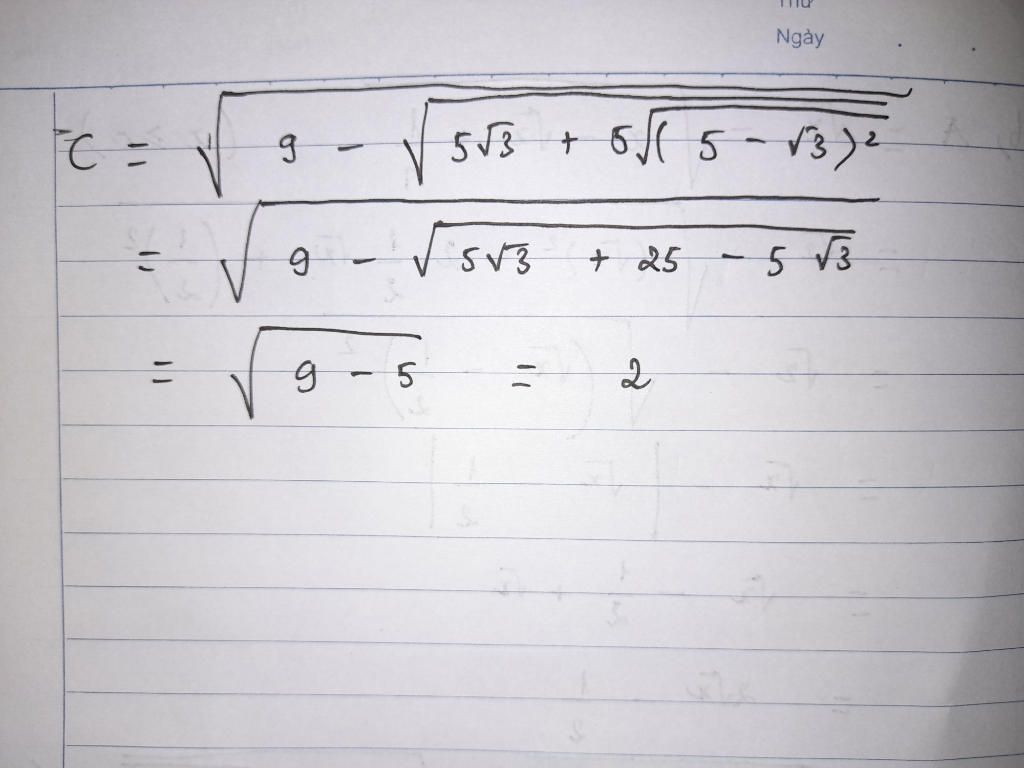 Thứ
Ngày
C = √(9 - √(5√3 + 5√((5 - √3)²)))
= √(9 - √(5√3 + 25 - 5√3))
= √(9 - 5) = 2